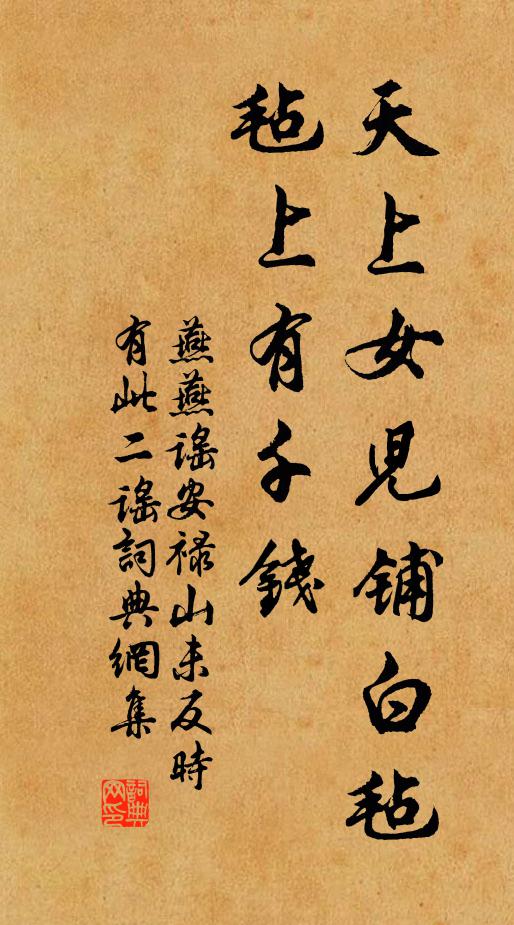 天上女兒鋪白氈
氈上有千錢
燕燕謠安祿山未反時
有此二謠詞典網集
詞典
网印